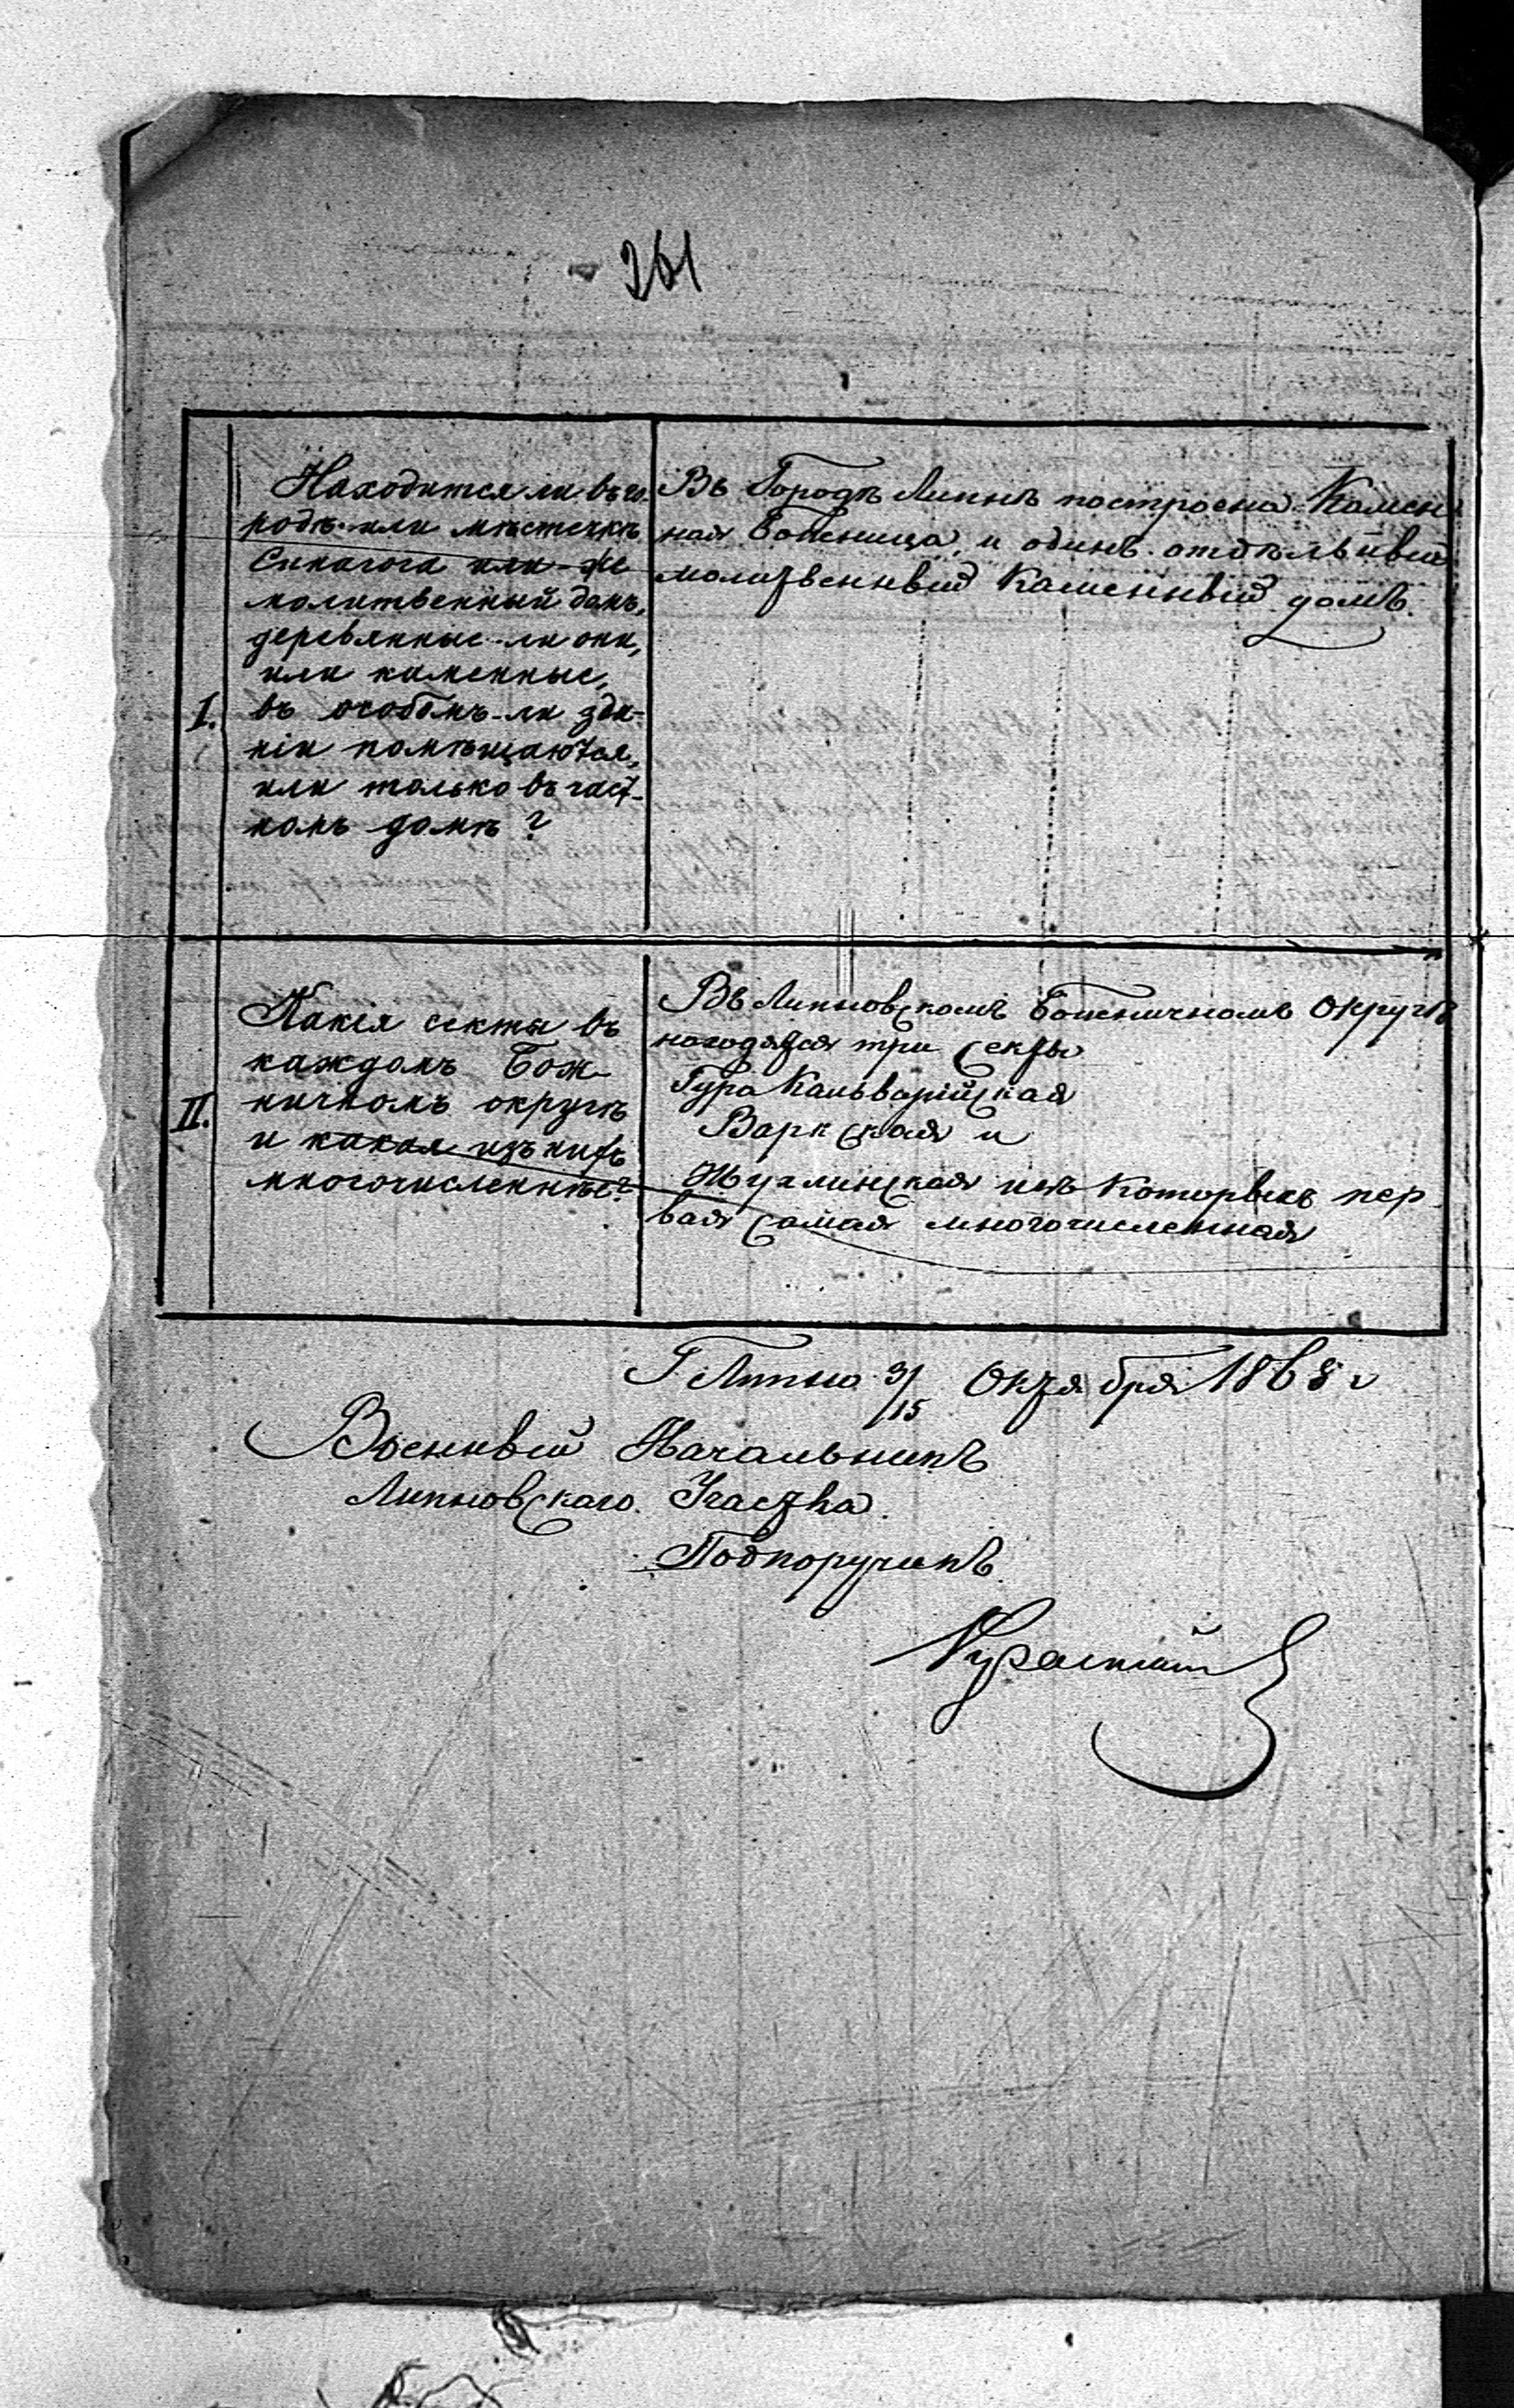 261
I.
Находится ли въ го-
родѣ или мѣстечкѣ
Синагога или же
молитвенный домъ,
деревянные-ли они,
или каменные,
въ особомъ-ли зда-
нiи помѣщаются,
или только въ част-
номъ домѣ?
Въ Городѣ Липнѣ построена Камен
ная Боженица, и одинъ отдѣльный
молитвенный Каменный домъ.
II.
Какiя секты въ
каждомъ Бож-
ничномъ округѣ
и какая изъ нихъ
многочисленнѣе?
Въ Липновскомъ Боженичномъ Округѣ
находятся три Секты
Гура Кальварiйская
Варкская и
из Которыхъ пер
вая самая многочисленная
Г Липно 3/15 Октября 1868 г
Военный Начальникъ
Липновскаго Участка.
Подпоручикъ